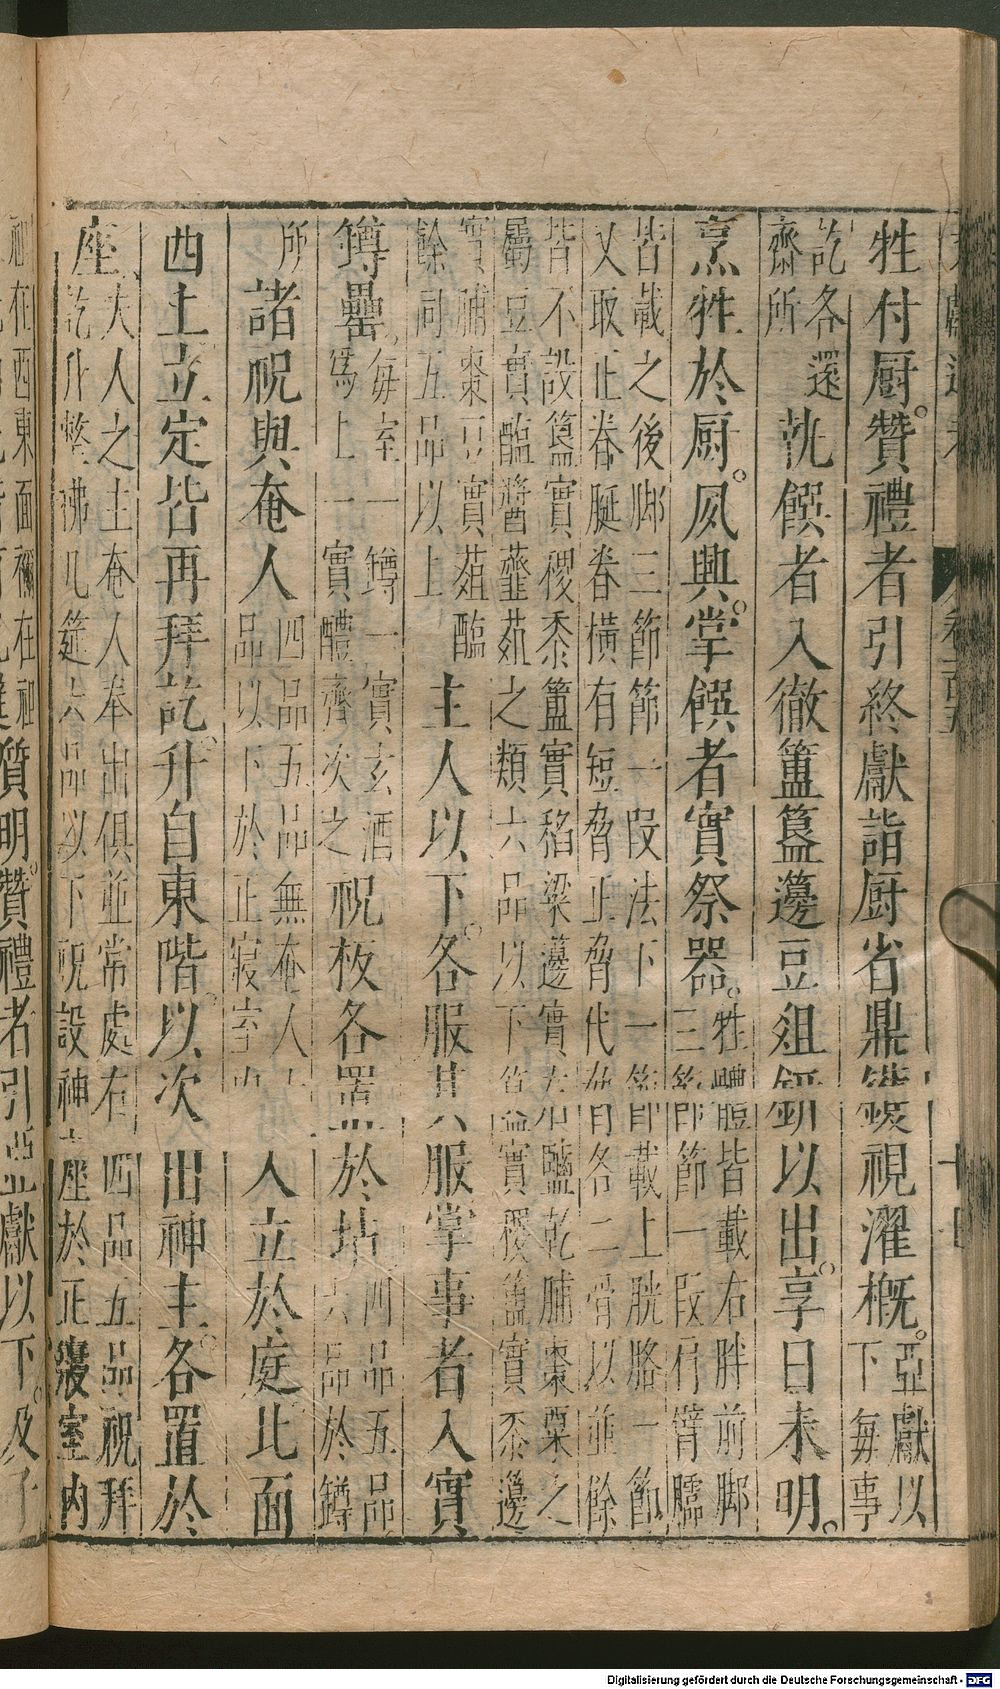 牲付厨。贊禮者引終獻詣厨省鼎鑊視濯槪。亞獻以
下每事
訖各還
齊所
執饌者入徹簠簋籩豆俎鉶以出。享日未明。
烹牲於厨。夙興。掌饌者實祭器。牲體皆載右胖前脚
三節節一段肩臂臑
皆載之後脚三節節一段法下一節卽載上胱胳一節
又取正脊脡脊橫有短脅正脅代脅各二骨以並餘
皆不設簋實稷黍簠實稻粱籩實石鹽乾脯棗栗之
屬豆實醢醬虀葅之類六品以下簋實稷簠實黍籩
實脯棗豆實葅醢
餘同五品以上
主人以下。各服其服掌事者入實
罇罍。每室一罇一實玄酒
爲上一實醴齊次之
祝板各置於坫四品五品
六品於罇
所
諸祝與奄人四品五品無奄人
品以下於正寢室
人立於庭北面
西上立定皆再拜訖。升自東階。以次出神主。各置於
座夫人之主奄人奉出俱並常處有四品五品祝拜
訖升整拂几筵六品以下祝設神座於正寢室內
在西東面禰在祖
質明。贊禮者引亞獻以下。及子
Digitalisierung gefördert durch die Deutsche Forschungsgemeinschaft - DFG